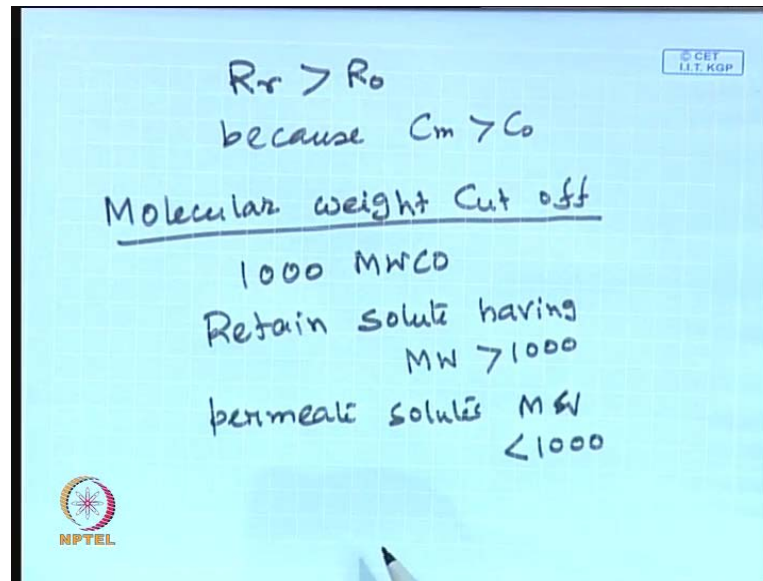 Rr > Ro
© CET
I.I.T. KGP
because Cm > Co
Molecular weight Cut off
1000 MWCO
Retain solute having
MW > 1000
permeate solutes MW
< 1000
NPTEL